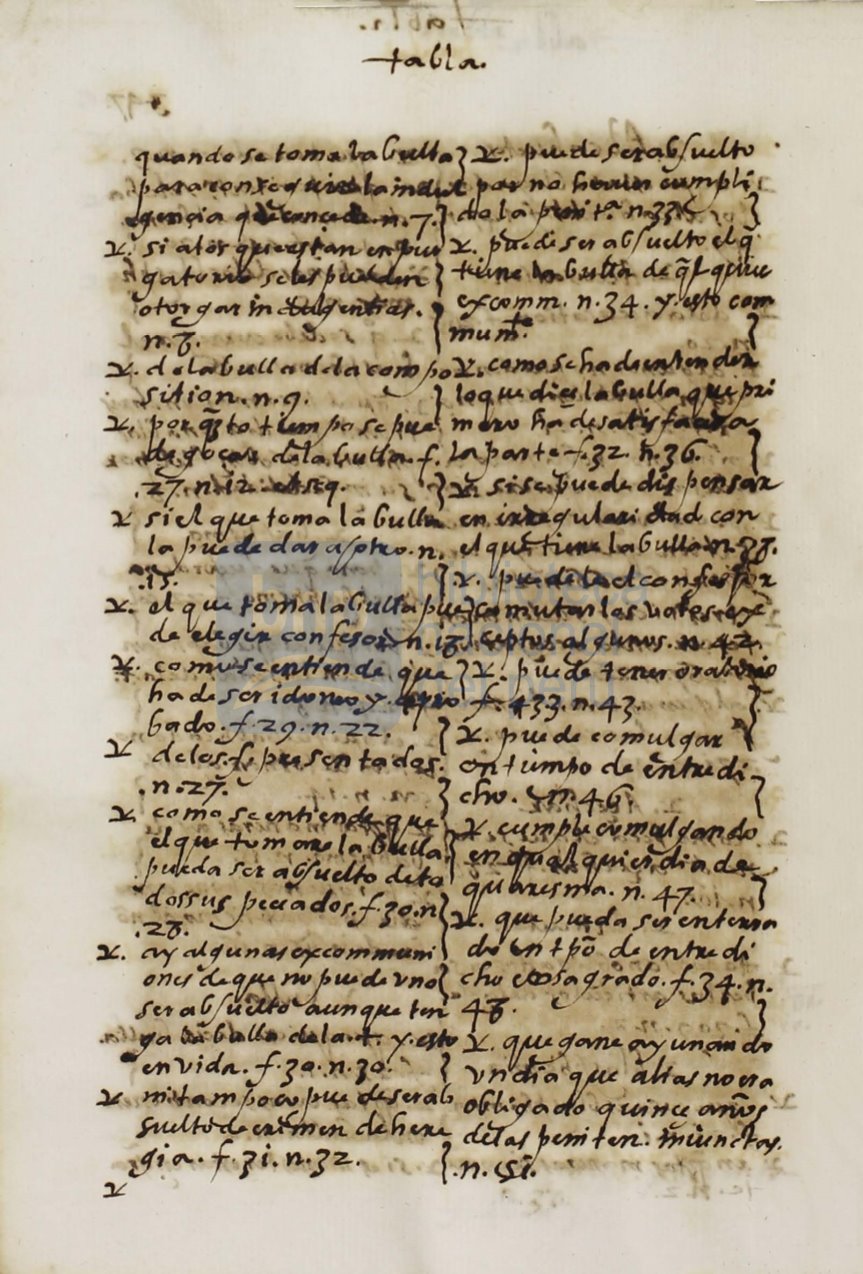 tabla.
quando se toma la bulla
para conseguir la indul
gencia q̃ concede. n. 7.
Y. si a los que estan en pur
gatorio se les pueden
otorgar indulgentias.
n. 8.
Y. de la bulla d la compo
sition. n. 9.
Y. por q̃to tiempo se pue
de goçar de la bulla. f.
27. n. 12. et seq.
Y si el que toma la bulla
la puede dar a otro. n.
15.
Y. el que toma la bulla pue
de elegir confesor n. 18.
Y. como se entiende que
ha de ser idoneo y apro
bado. f. 29. n. 22.
Y de los presentados.
n. 27.
Y. como se entiende que
el que tomare la bulla
pueda ser absuelto de to
dos sus peccados. f. 30. n
.28.
Y. ay algunas excommuni
ones de que no puede vno
ser absuelto aunque ten
ga la bulla de la +. y esto
en vida. f. 30. n. 30.
Y ni tampoco puede ser ab
suelto de crimen de here
gia. f. 31. n. 32.
Y
Y. puede ser absuelto
por no haver cumpli
do la penit.ª n. 33.
Y. puede ser absuelto el q̃
tiene la bulla de q̃lquier
excomm. n. 34. y esto com
munt.e
Y. como se ha de entender
lo que dice la bulla, que pri
mero ha de satisfacer a
la parte f. 32. n. 36.
Y. si se puede dispensar
en irregularidad con
el que tiene la bulla n. 38.
Y. puede el confessor
comutar los votos ex
ceptos algunos. n. 42.
Y. puede tener oratorio
f. 433. n. 43.
Y. puede comulgar
en tiempo de entredi
cho. n. 46.
Y. cumple comulgando
en qualquier dia de
quaresma. n. 47.
Y. que pueda ser enterra
do en tpõ de entredi
cho en sagrado. f. 34. n.
48.
Y. que gane ayunando
vn dia que alias no era
obligado quince años
de las peniten. iniunctas.
n. 51.